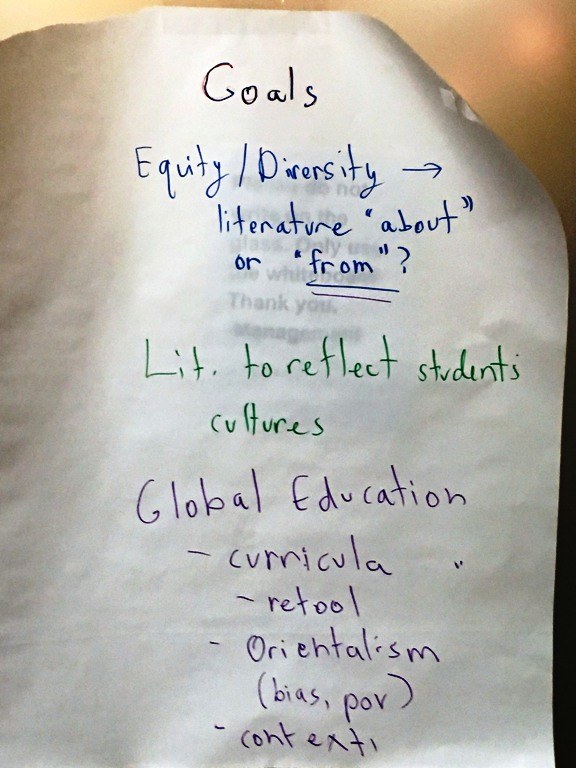 Goals
Equity / Diversity →
literature "about"
or "from"?
Lit. to reflect students
cultures
Global Education
- curricula "
- retool
- Orientalism
(bias, pov)
- context,
Thank you.
Management